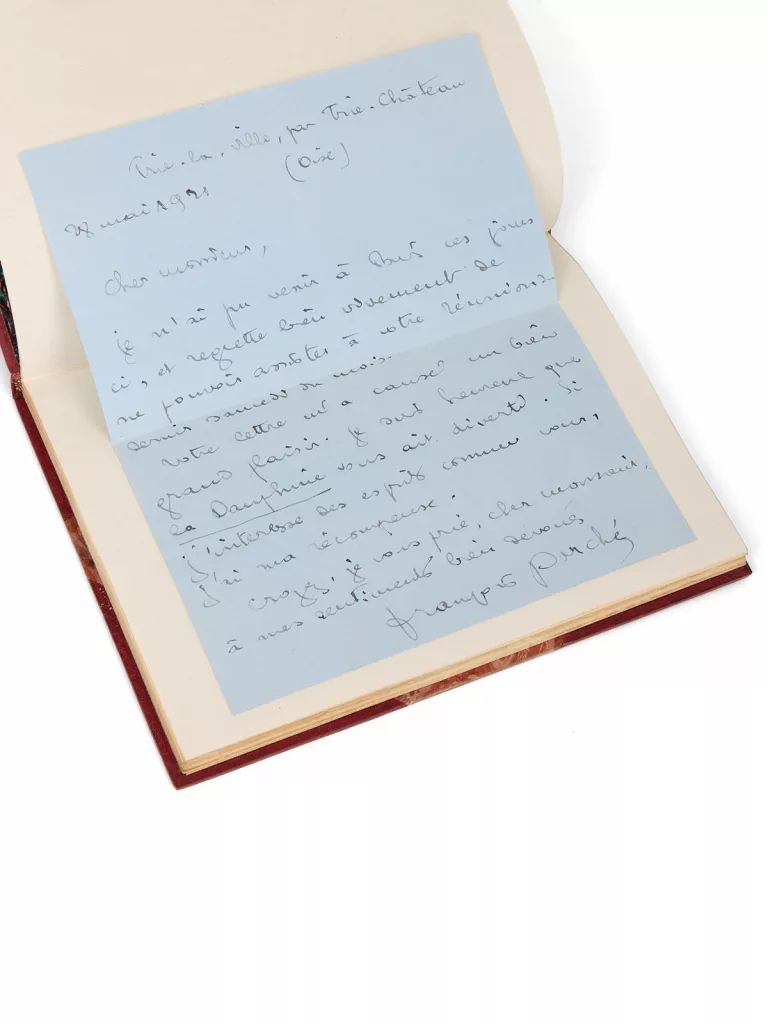 Trie-la-ville, par Trie-Château
(Oise)
28 mai 1921
Cher monsieur,
je n'ai pu venir à Paris ces jours
ci, et regrette bien vivement de
ne pouvoir assister à votre réunion du
dernier samedi du mois.
Votre lettre m'a causé un bien
grand plaisir. Je suis heureux que
la Dauphine vous ait diverti. Si
j'intéresse des esprits comme vous,
j'ai ma récompense.
Croyez, je vous prie, cher monsieur,
à mes sentiments bien dévoués
François Porché